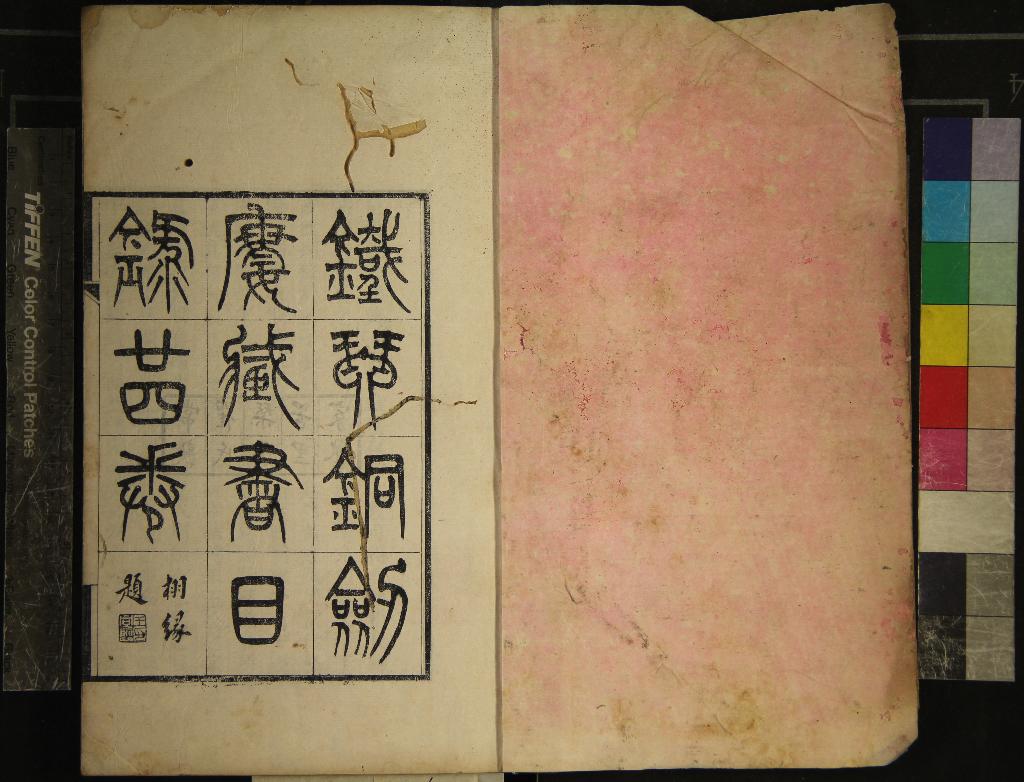 鐵琴銅劍
廔藏書目
録廿四卷
栩緣
題
TIFFEN Color Control Patches
Blue
Cyan
Green
Yellow